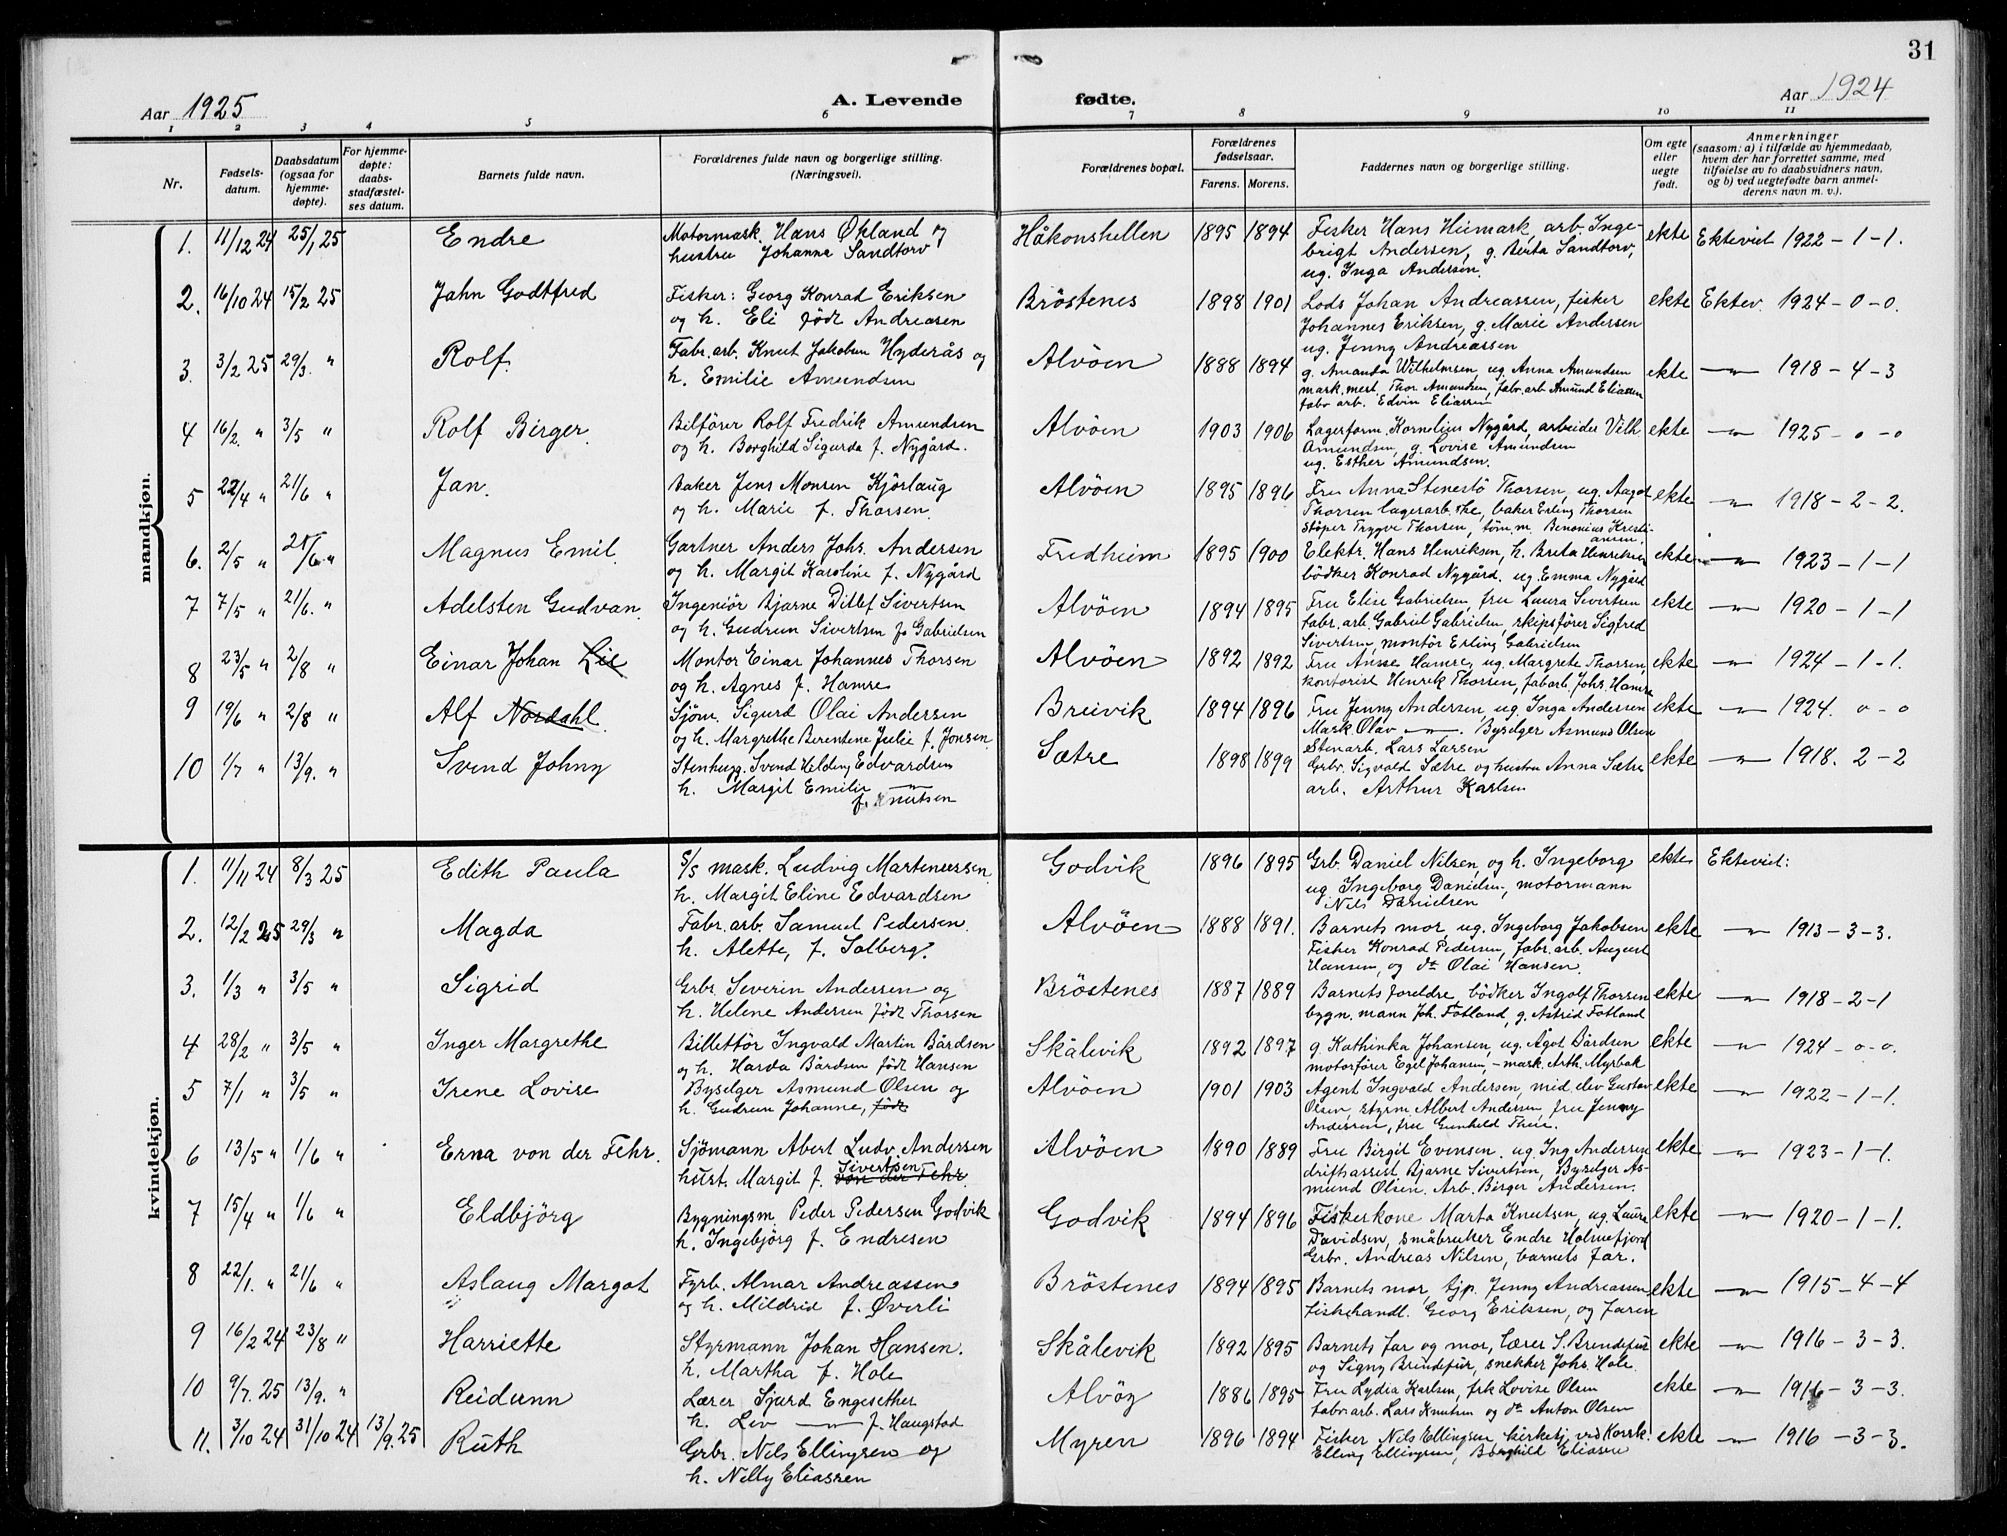 31
Aar 1925
A. Levende
fødte.
Aar 1924
1 2 3 4 5 6 7 8 9 10 11
Nr.
Fødsels-
datum.
Daabsdatum
(ogsaa for
hjemme-
døpte).
For hjemme-
døpte:
daabs-
stadfæstel-
ses datum.
Barnets fulde navn.
Forældrenes fulde navn og borgerlige stilling.
(Næringsvei).
Forældrenes bopæl.
Forældrenes
fødselsaar.
Farens. Morens.
Faddernes navn og borgerlige stilling.
Om egte
eller
uegte
født.
Anmerkninger
(saasom: a) i tilfælde av hjemmedaab,
hvem der har forrettet samme, med
tilføielse av to daabsvidners navn,
og b) ved uegtefødte barn anmel-
derens navn m. v.).
mandkjøn.
1. 11/12 24 25/1 25 Endre Motormask. Hans Økland og Håkonshellen 1895 1894 Fisker Hans Heimark, arb. Inge- ekte Ekteviet 1922 – 1 – 1.
hustru Johanna Sandtorv brigt Andersen, g. Berta Sandtorv,
ug. Inga Andersen.
2. 16/10 24 15/2 25 Jahn Godtfred Fisker: Georg Konrad Eriksen Bröstenes 1898 1901 Lods Johan Andreassen, fisker ekte Ektev. 1924 – 0 – 0.
og h. Eli født Andreasen Johannes Eriksen, g. Marie Andersen
ug. Jenny Andreassen
3. 3/2 25 29/3. " Rolf. Fabr. arb. Knut Jakobsen Hyderås og Alvöen 1888 1894 g. Amanda Wilhelmsen, ug. Anna Amundsen ekte –"– 1918 – 4 – 3
h. Emilie Amundsen mask. mest. Thor Amundsen, fabr. arb. Amund Eliassen
fabr. arb. Edvin Eliassen
4 16/2. " 3/5 " Rolf Birger. Bilfører Rolf Fredrik Amundsen Alvöen 1903 1906 Lagerform. Kornelius Nygård, arbeider Vilh ekte –"– 1925 – 0 – 0
og h. Borghild Sigurda f. Nygård. Amundsen, g. Lovise Amundsen
ug. Esther Amundsen.
5 22/4 " 21/6 " Jan. Baker Jens Monsen Kjörlaug Alvöen 1895 1896 Fru Anna Stenestö Thorsen, ug. Aagot ekte –"– 1918 – 2 – 2.
og h. Marie f. Thorsen. Thorsen lagerarb. , baker Erling Thorsen
Støper Trygve Thorsen, töm. m. Benonius Kristi-
ansen.
6. 2/5 " 21/6. " Magnus Emil. Gartner Anders Johs. Andersen Fredheim 1895 1900 Elektr. Hans Henriksen, h. Breta Henriksen ekte –"– 1923 – 1 – 1
og h. Margit Karoline f. Nygård bödker Konrad Nygård. ug. Emma Nygård
7 7/5 " 21/6. " Adelsten Gudvan. Ingeniör Bjarne Ditlef Sivertsen Alvöen 1894 1895 Fru Elise Gabrielsen, fru Laura Sivertsen ekte –"– 1920 – 1 – 1
og h. Gudrun Sivertsen f. Gabrielsen fabr. arb. Gabriel Gabrielsen, skipsfører Sigfred
Sivertsen, montör Erling Gabrielsen
8 23/5 " 2/8 " Einar Johan Lie Montör Einar Johannes Thorsen Alvöen 1892 1892 Fru Hamre, ug. Margrete Thorsen, ekte –"– 1924 – 1 – 1.
og h. Agnes f. Hamre kontorist Henrik Thorsen, fabarb. Johs. Hamre
9 19/6 " 2/8 " Alf Nordahl. Sjöm. Sigurd Olai Andersen Breivik 1894 1896 Fru Jenny Andersen, ug. Inga Andersen ekte –"– 1924. 0 – 0
og h. Margrethe Berentene Julie f. Jonsen. Mask. Olav –"–. Byselger Asmund Olsen
10 1/7 " 13/9. " Svend Johny Stenhugg. Svend Helding Edvardsen Sætre 1898 1899 Stenarb. Lars Larsen ekte –"– 1918. 2 – 2
h. Margit Emilie –"– Grbr. Sigvald Sætre og hustru Anna Sætre
f. Knutsen arb. Arthur Karlsen
kvindekjøn.
1. 11/11 24 8/3 25 Edith Paula S/S mask. Ludvig Martenussen. Godvik 1896 1895 Grb. Daniel Nilsen, og h. Ingeborg ekte Ekteviet:
h. Margit Eline Edvardsen ug Ingeborg Danielsen, motormann
Nils Danielsen
2. 12/2 25 29/3 " Magda Fabr. arb. Samuel Pedersen. Alvöen 1888 1891. Barnets mor, ug. Ingeborg Jakobsen ekte –"– 1913 – 3 – 3.
h. Alette, f. Solberg. Fisker Konrad Pedersen, fabr. arb. August
Hansen, og do Olai Hansen.
3. 1/3 " 3/5 " Sigrid Grbr Severin Andersen og Bröstenes 1887 1889 Barnets foreldre, bödker Ingolf Thorsen ekte –"– 1918 – 2 – 1
h. Helene Andersen født Thorsen bygn. mann Joh. Fotland, g. Astrid Fotland
4 28/2 " 3/5 " Inger Margrethe Billettör Ingvald Martin Bårdsen Skålevik 1892 1897 g. Kathinka Johansen, ug. Ågot Bårdsen ekte –"– 1924 – 0 – 0.
og h. Harda Bårdsen født Hansen motorfører Egil Johansen, – mask. Arth. Myrbak
5 7/1 " 3/5 " Irene Lovise Byselger Asmund Olsen og Alvöen 1901 1903 Agent Ingvald Andersen, mid. elev Gustav ekte –"– 1922 – 1 – 1.
h. Gudrun Johanne, født Olsen, styrm. Albert Andersen, fru Jenny
Andersen, fru Gunhild Thue.
6 13/5 " 1/6 " Erna von der Fehr. Sjömann Abert Ludv. Andersen Alvöen 1890 1889 Fru Birgit Evensen. ug. Ing Andersen ekte –"– 1923 – 1 – 1.
hustr. Margit f. Sivertsen von der Fehr. driftsassist Bjarne Sivertsen, Byselger As-
mund Olsen. Arb. Birger Andersen.
7 15/4 " 1/6 " Eldbjörg Bygningsm. Peder Pedersen Godvik Godvik 1894 1896 Fiskerkone Marta Knutsen, ug. Laura ekte –"– 1920 – 1 – 1.
h. Ingebjörg f. Endresen Davidsen, småbruker Endre Holmefjord
Grbr. Andreas Nilsen, barnets far.
8 22/1. " 21/6 " Aslaug Margot Fyrb. Almar Andreassen Bröstenes 1894 1895 Barnets mor, tjp. Jenny Andreassen ekte –"– 1915 – 4 – 4
og h. Mildrid f. Øverli Fiskehandl. Georg Eriksen, og faren
9 16/2 24 23/8 " Harriette Styrmann Johan Hansen. Skålevik 1892 1895 Barnets far og mor, Lærer S. Brendefur ekte –"– 1916 – 3 – 3.
h. Martha f. Hole og Signy Brendefur, snekker Johs. Hole.
10 9/7. 25 13/9. " Reidunn Lærer Sjurd Engesether Alvöy 1886 1895 Fru Lydia Karlsen, frk Lovise Olsen ekte –"– 1916 – 3 – 3.
h. Liv –"– f. Haugstad fabr. arb. Lars Knutsen og do Anton Olsen
11. 3/10 24 31/10 24 13/9. 25 Ruth Grbr. Nils Ellingsen og Myren 1896 1894 Fisker Nils Ellingsen kirketj. ved Korsk. ekte –"– 1916 – 3 – 3.
h. Nelly Eliassen Elling Ellingsen, Borghild Eliasen